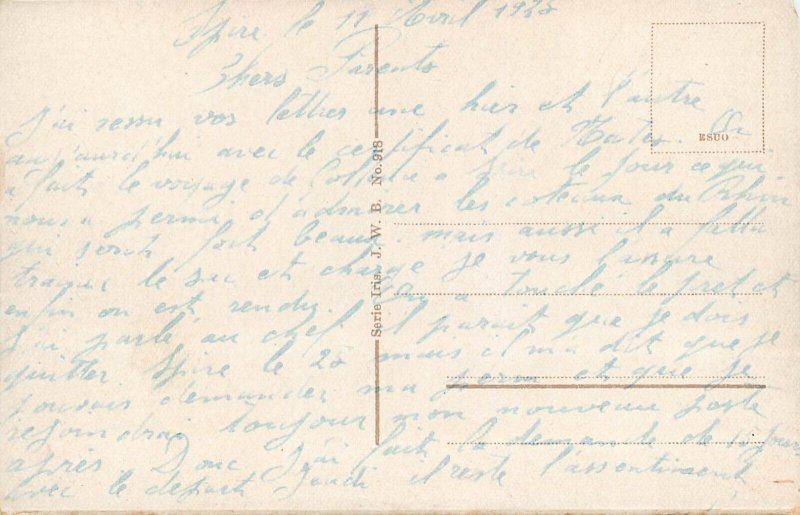 Spire le 11 Avril 19
Chers Parents
J'ai ressu vos lettres une hier et l'autre
aujourd'hui avec le certificat de On
a fait le voyage de a Spire le jour ce qui
nous a permi d'admirer les coteaux du Rhin
qui sont fort beaux. mais aussi il a fallu
le sac et chargé je vous l'assure
enfin on est rendu. On a touché le pret et
j'ai parlé au chef il parait que je dois
quitter Spire le 20 mais il m'a dit que je
pouvais demander ma perm et que je
rejoindrai toujours mon nouveau poste
après Donc j'ai fait la demande de jours
avec le départ Jeudi il reste l'assentiment
ESUO
Serie Iris. J. W. B. No. 918